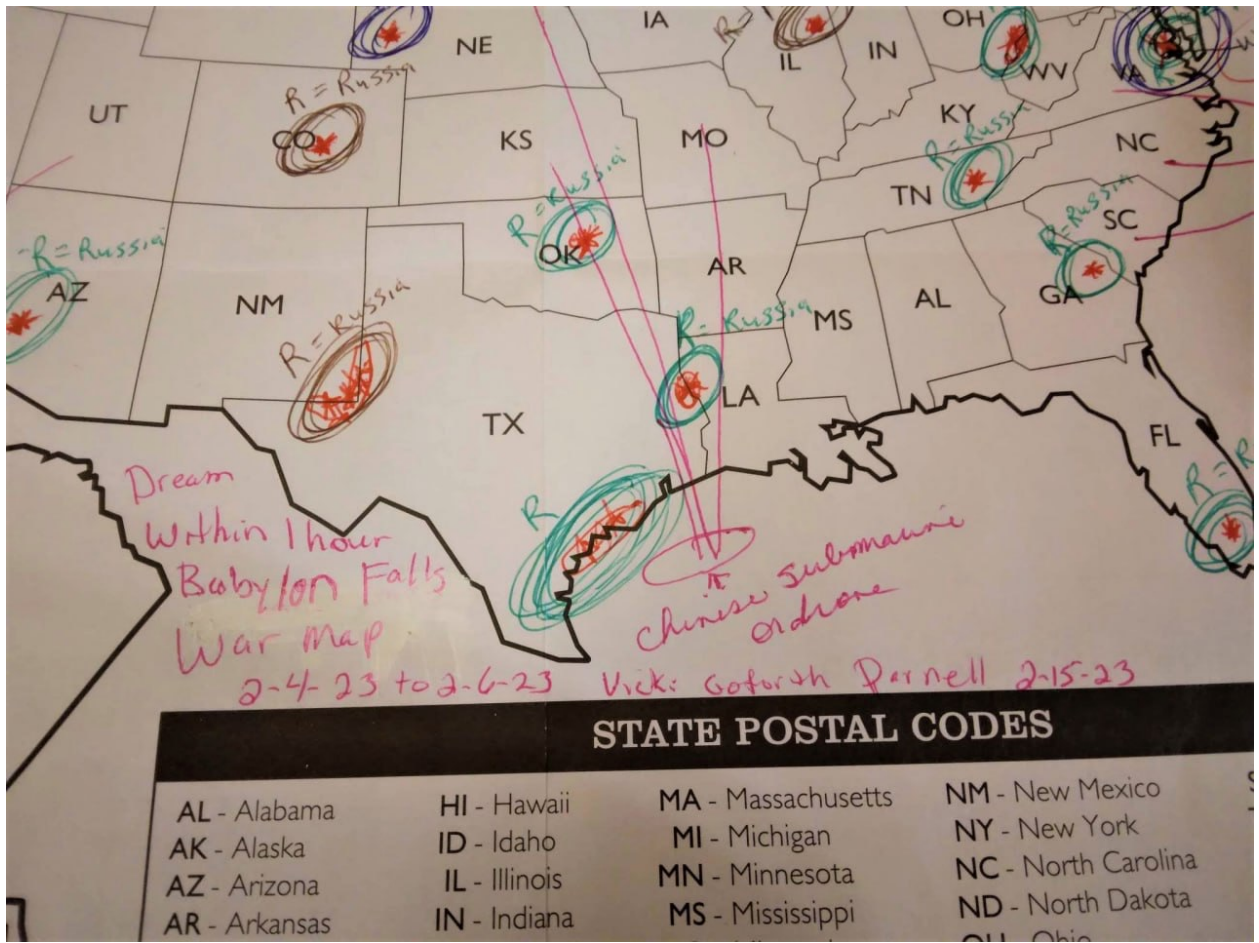 IA
OH
NE
IL
IN
WV
VA
R = Russia
UT
CO
KS
MO
KY
R = Russia
NC
R = Russia
TN
R = Russia
SC
R = Russia
OK
AZ
NM
AR
GA
R = Russia
R = Russia
MS
AL
TX
LA
FL
R =
R
Dream
Within 1 hour
Babylon Falls
War map
Chinese submaurine
or drone
2-4-23 to 2-6-23 Vicki Goforth Parnell 2-15-23
STATE POSTAL CODES
AL - Alabama
AK - Alaska
AZ - Arizona
AR - Arkansas
HI - Hawaii
ID - Idaho
IL - Illinois
IN - Indiana
MA - Massachusetts
MI - Michigan
MN - Minnesota
MS - Mississippi
NM - New Mexico
NY - New York
NC - North Carolina
ND - North Dakota
OH - Ohio